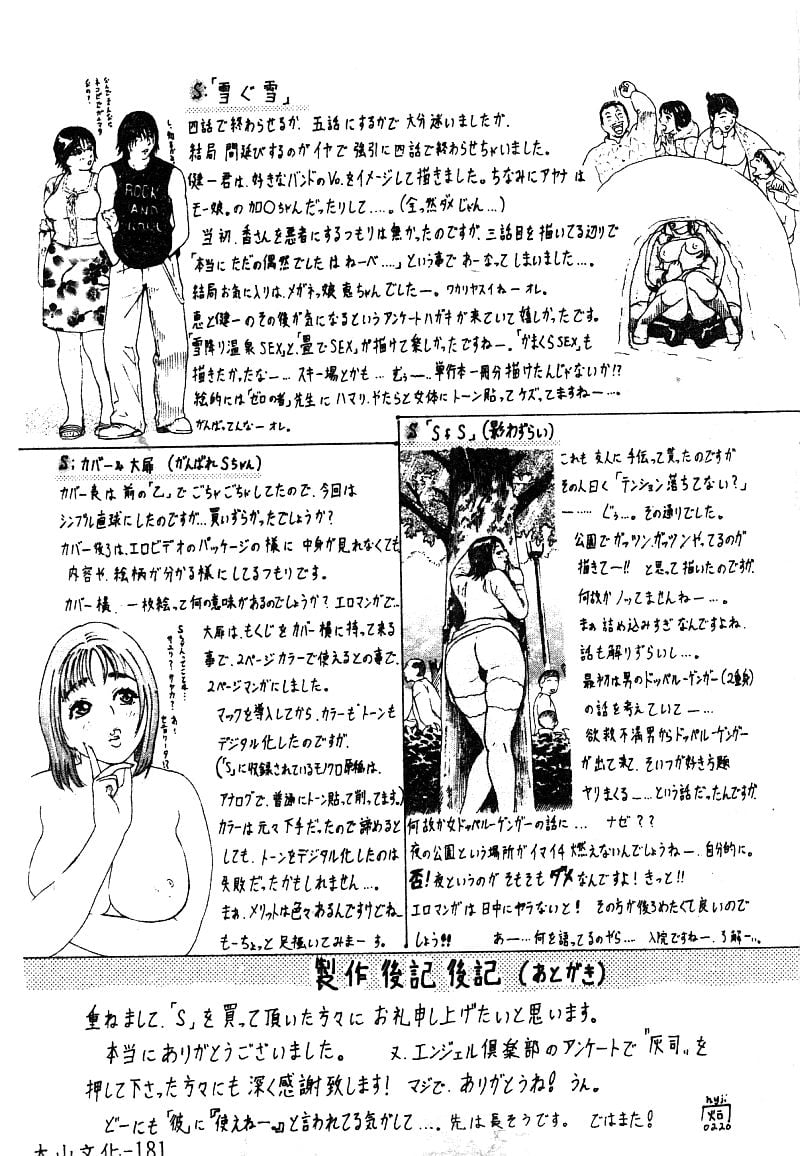 S:「雪ぐ雪」
四話で終わらせるか、五話にするかで大分迷いましたが、
結局 間延びするのがイヤで強引に四話で終わらせちゃいました。
健一君は、好きなバンドのVo.をイメージして描きました。ちなみにアヤナは
モー娘。の加〇ちゃんだったりして…。(全っ然ダメじゃん…)
当初、香さんを悪者にするつもりは無かったのですが、三話目を描いてる辺りで
「本当にただの偶然でした はねーべ…」という事で わーなってしまいました…。
結局お気に入りは、メガネっ娘 恵ちゃんでしたー。ワカリヤスイねーオレ。
恵と健一のその後が気になるというアンケートハガキが来ていて嬉しかったです。
「雪降り温泉SEX」と「畳でSEX」が描けて楽しかったですねー。「かまくらSEX」も
描きたかったなー… スキー場とかも… むぅー…単行本一冊分描けたんじゃないか!?
絵的には「ゼロの者」先生に ハマリ、やたらと女体にトーン貼ってケズってますねー…。
がんばってんなーオレ。
ROCK
AND
ROLL
S:カバー&大扉 (がんばれSちゃん)
カバー表は前の「乙」でごちゃごちゃしてたので、今回は
シンプル直球にしたのですが…買いずらかったでしょうか?
カバー後ろは、エロビデオのパッケージの様に 中身が見れなくても
内容や、絵柄が分かる様にしてるつもりです。
カバー横、一枚絵って何の意味があるのでしょうか?エロマンガで…
大扉は、もくじをカバー横に持って来る
事で、2ページカラーで使えるとの事で、
2ページマンガにしました。
マックを導入してから、カラーも トーンも
デジタル化したのですが、
(「S」に収録されているモノクロ原稿は、
アナログで、普通にトーン貼って削ってます。)
カラーは元々下手だったので諦めると
しても、トーンをデジタル化したのは
失敗だったかもしれません…。
まぁ、メリットは色々あるんですけどね、
もーちょっと足掻いてみまーす。
S「S&S」(影わずらい)
これも友人に手伝って貰ったのですが
その人曰く「テンション落ちてない?」
―…… じぅ…。その通りでした。
公園でガッツン、ガッツンやってるのが
描きてー!! と思って描いたのですが、
何故かノッてませんねー…。
まぁ詰め込みすぎなんですよね、
話も解りずらいし…。
最初は男のドッペルーゲンガー(2重身)
の話を考えていて―…
欲求不満男からドッペルーゲンガー
が出て来て、そいつが好き方題
ヤリまくる―…という話だったんですが、
何故か女ドッペルーゲンガーの話に… ナゼ??
夜の公園という場所がイマイチ燃えないんでしょうねー、自分的に。
否!夜というのがそもそもダメなんですよ!きっと!!
エロマンガは日中にヤラないと! その方が後ろめたくて良いので
しょう!! あー…何を語ってるのやら… 入院ですねー、了解ー…。
製作後記後記(あとがき)
重ねまして、「S」を買って頂いた方々に お礼申し上げたいと思います。
本当にありがとうございました。 又、エンジェル倶楽部のアンケートで『灰司』を
押して下さった方々にも深く感謝致します! マジで、ありがとうね! うん。
どーにも「彼」に『使えねー。』と言われてる気がして…。先は長そうです。ではまた!
0220
大山文化-181